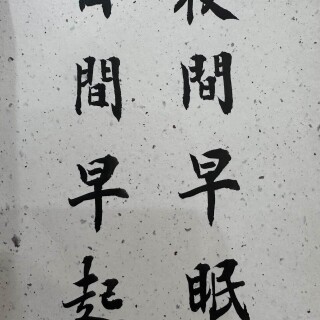 夜間早眠
間早起